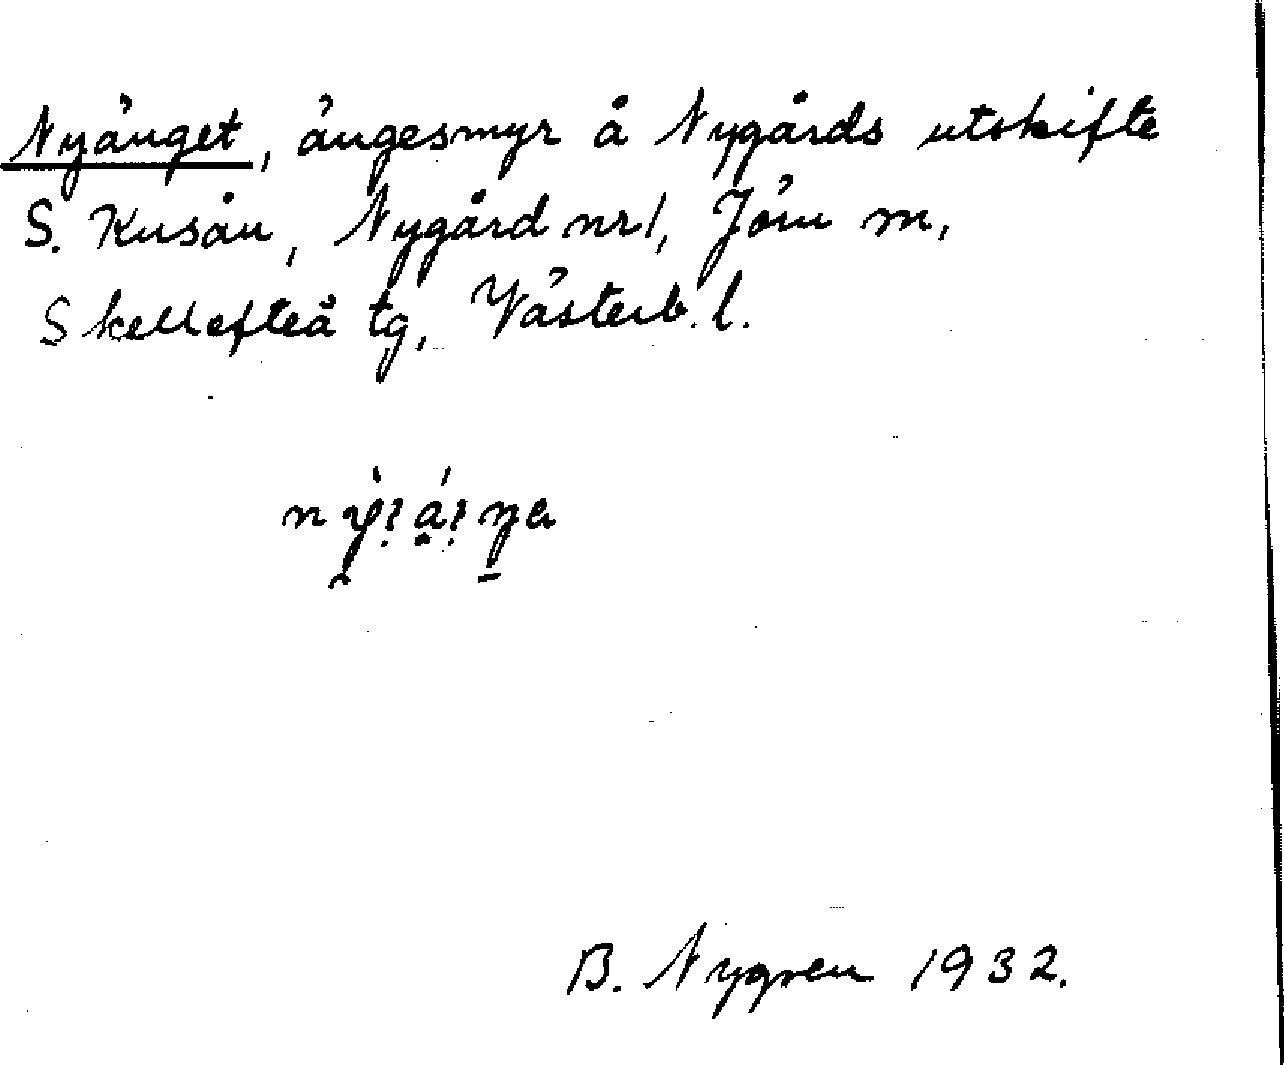 Nyänget, ängesmyr å Nygårds utskifte
S. Kusån, Nygård nr 1, Jörn m,
Skellefteå tg, Västerb. l.
B. Nygren 1932.